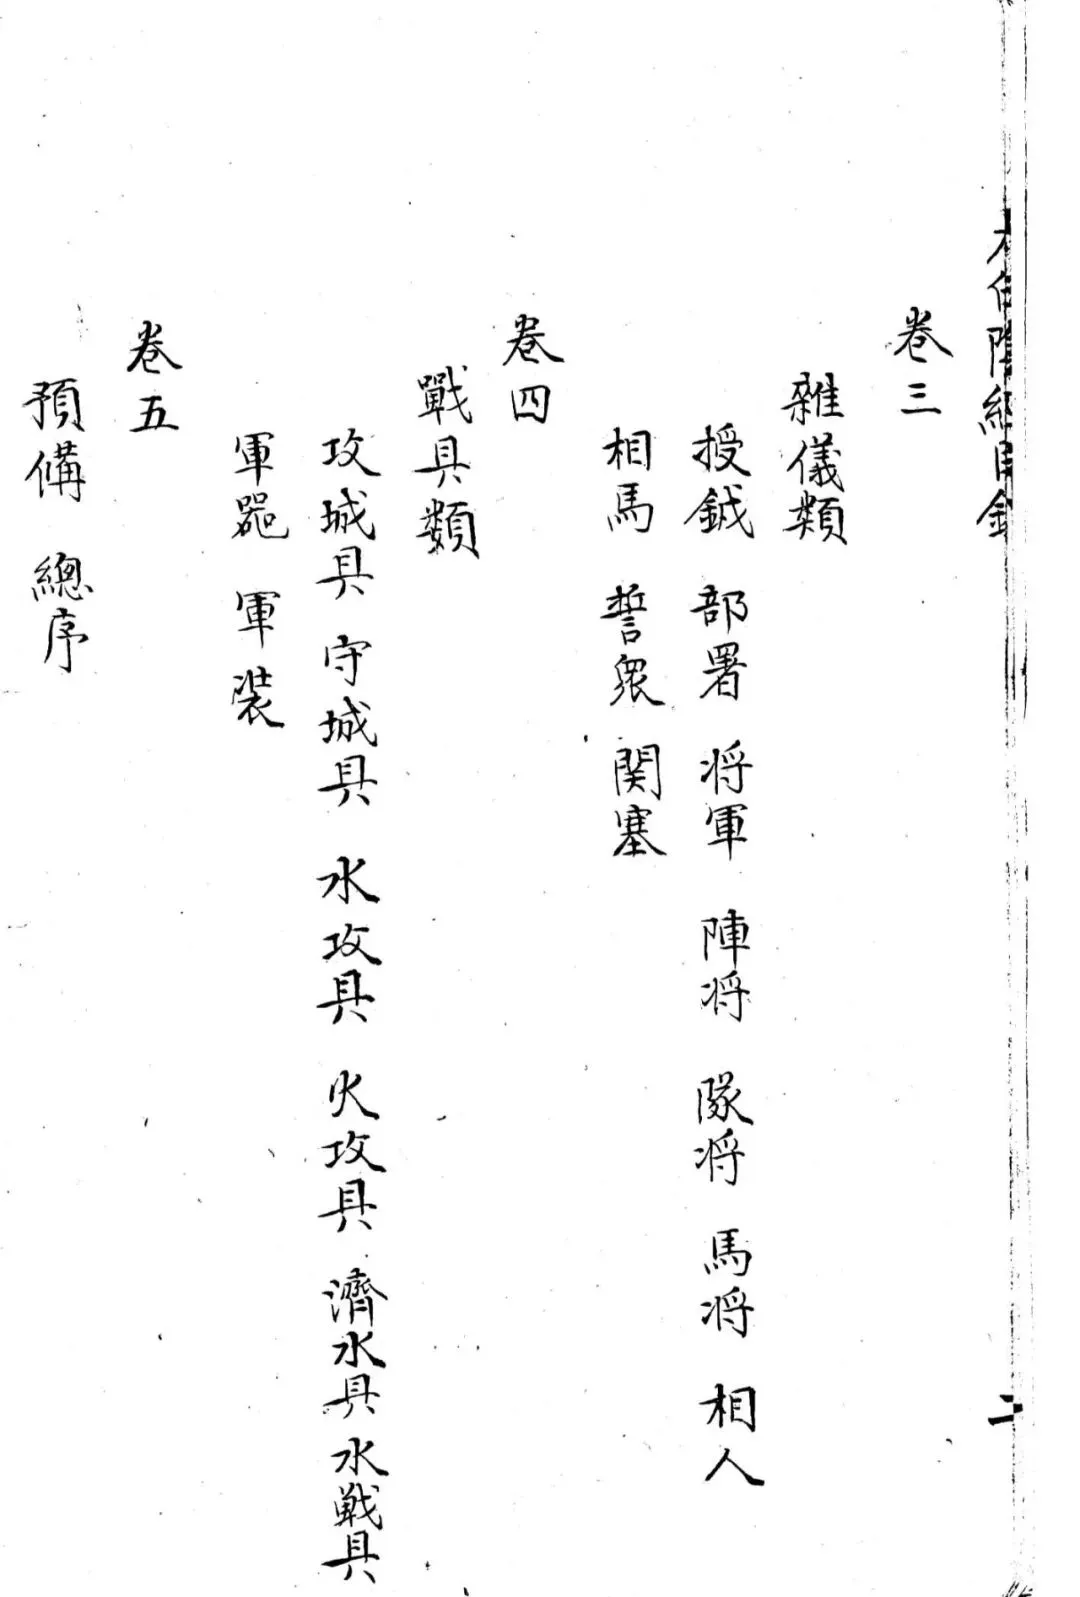 太白陰經目錄
二
卷三
雜儀類
授鉞 部署 将軍 陣将 隊将 馬将 相人
相馬 誓衆 関塞
卷四
戰具類
攻城具 守城具 水攻具 火攻具 濟水具 水戦具
軍噐 軍裝
卷五
預備 總序